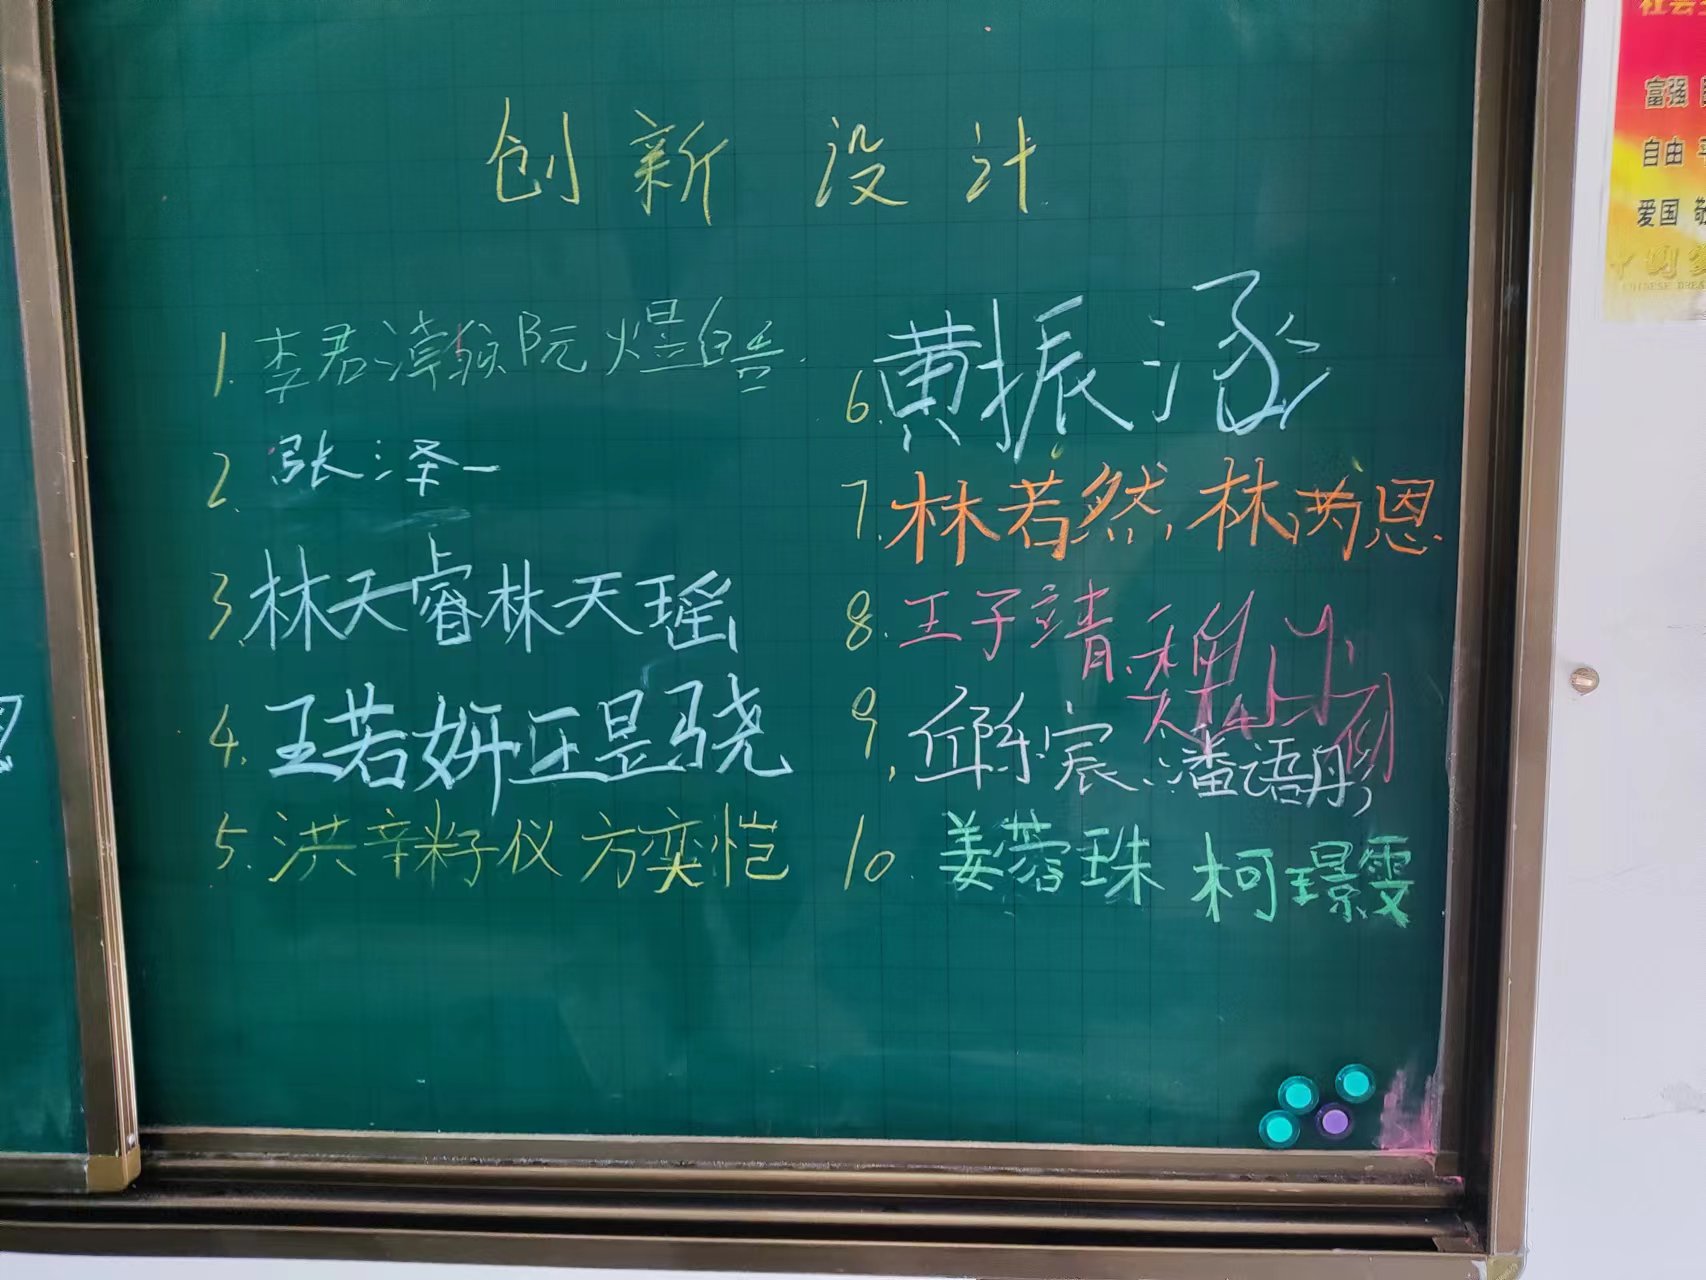 创新设计
1. 李君淖 阮煜皓
2. 张泽一
3. 林天睿林天瑶
4. 王若妍王昱骁
5. 洪辛籽仪 方奕恺
6. 黄振涵
7. 林若然, 林芮恩
8. 王子靖
9. 邱宸、潘语彤
10. 姜蓉珠 柯璟雯
富强
自由
爱国